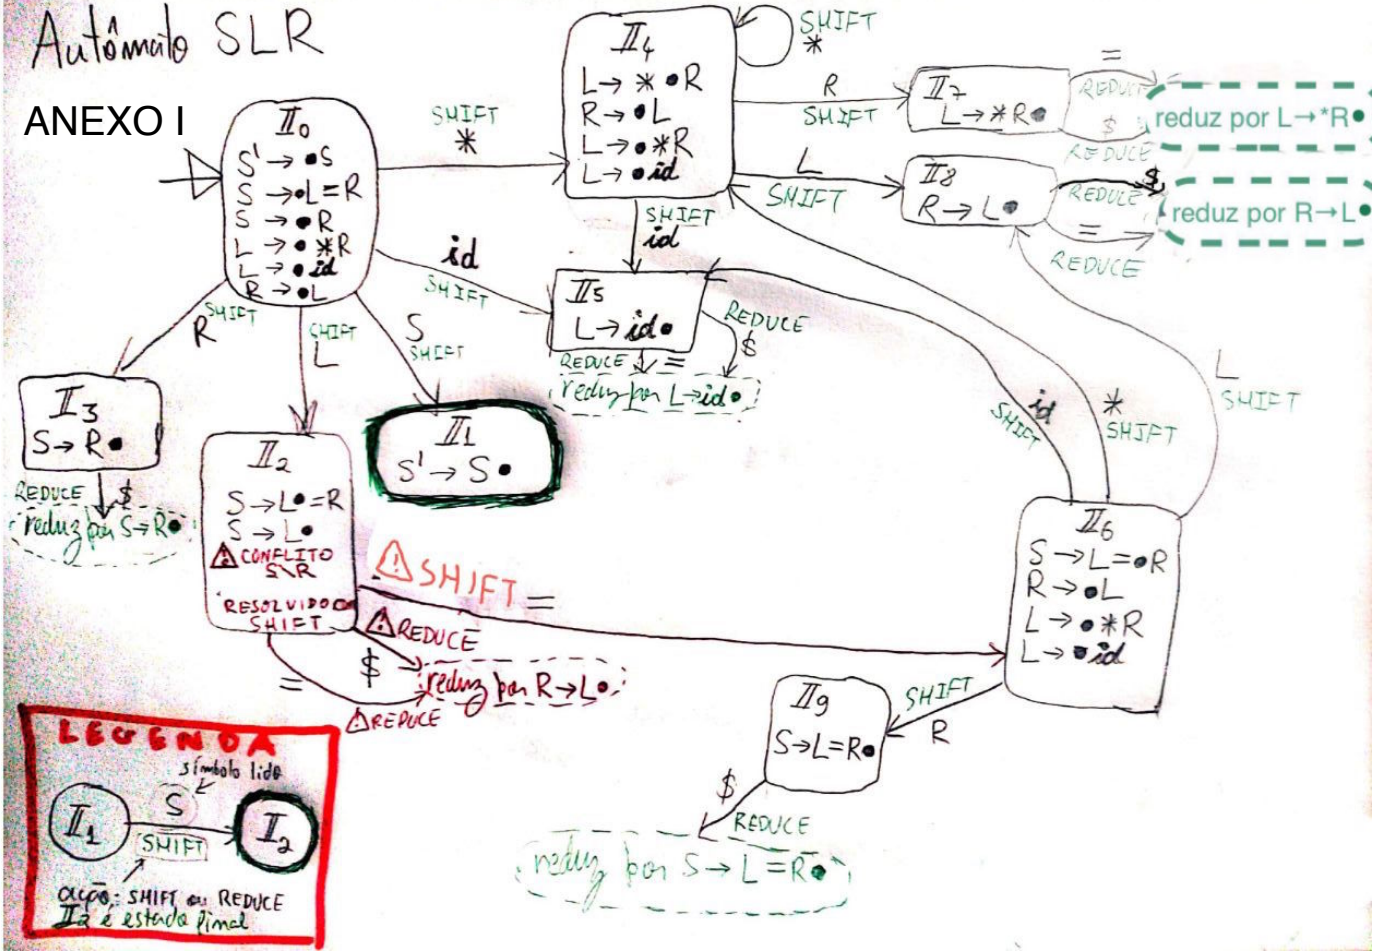 Autômato SLR
ANEXO I
I0
S' → •S
S → •L=R
S → •R
L → •*R
L → •id
R → •L
SHIFT
*
I4
L → *•R
R → •L
L → •*R
L → •id
SHIFT
*
R
SHIFT
I7
L → *R•
=
REDUCE
$
REDUCE
reduz por L→*R•
L
SHIFT
I8
R → L•
$
REDUCE
=
REDUCE
reduz por R→L•
id
SHIFT
SHIFT
id
I5
L → id•
REDUCE
$
REDUCE =
reduz por L→id•
SHIFT
R
SHIFT
L
S
SHIFT
I3
S → R•
REDUCE $
reduz por S→R•
I1
S' → S•
I2
S → L•=R
S → L•
⚠ CONFLITO
S\R
RESOLVIDO
SHIFT
⚠ SHIFT =
⚠ REDUCE
$
=
⚠ REDUCE
reduz por R→L•
id
SHIFT
*
SHIFT
L
SHIFT
I6
S → L=•R
R → •L
L → •*R
L → •id
SHIFT
R
I9
S→L=R•
$
REDUCE
reduz por S → L=R•
LEGENDA
símbolo lido
S
I1
SHIFT
I2
ação: SHIFT ou REDUCE
I2 é estado final